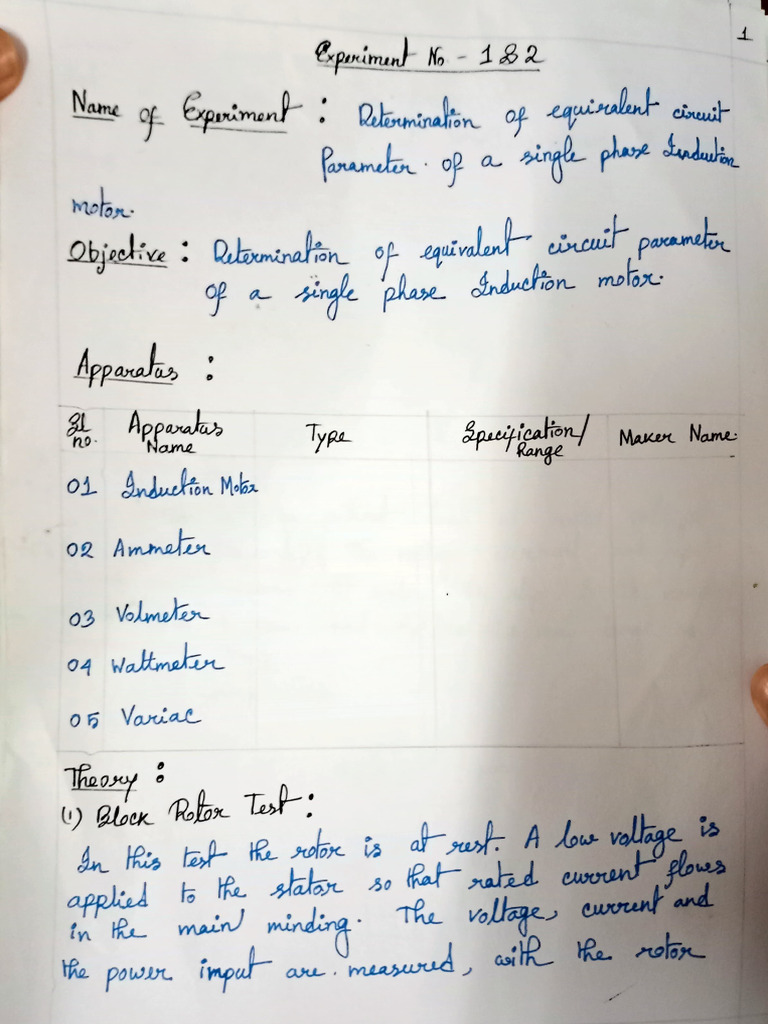 1
Experiment No - 1 & 2
Name of Experiment : Determination of equivalent circuit
Parameter. of a single phase Induction
motor.
Objective : Determination of equivalent circuit parameter
of a single phase Induction motor.
Apparatus :
Sl no. Apparatus Name Type Specification/ Range Maker Name.
01 Induction Motor
02 Ammeter
03 Volmeter
04 Wattmeter
05 Variac
Theory :
(1) Block Rotor Test :
In this test the rotor is at rest. A low voltage is
applied to the stator so that rated current flows
in the main minding. The voltage, current and
the power imput are. measured, with the rotor